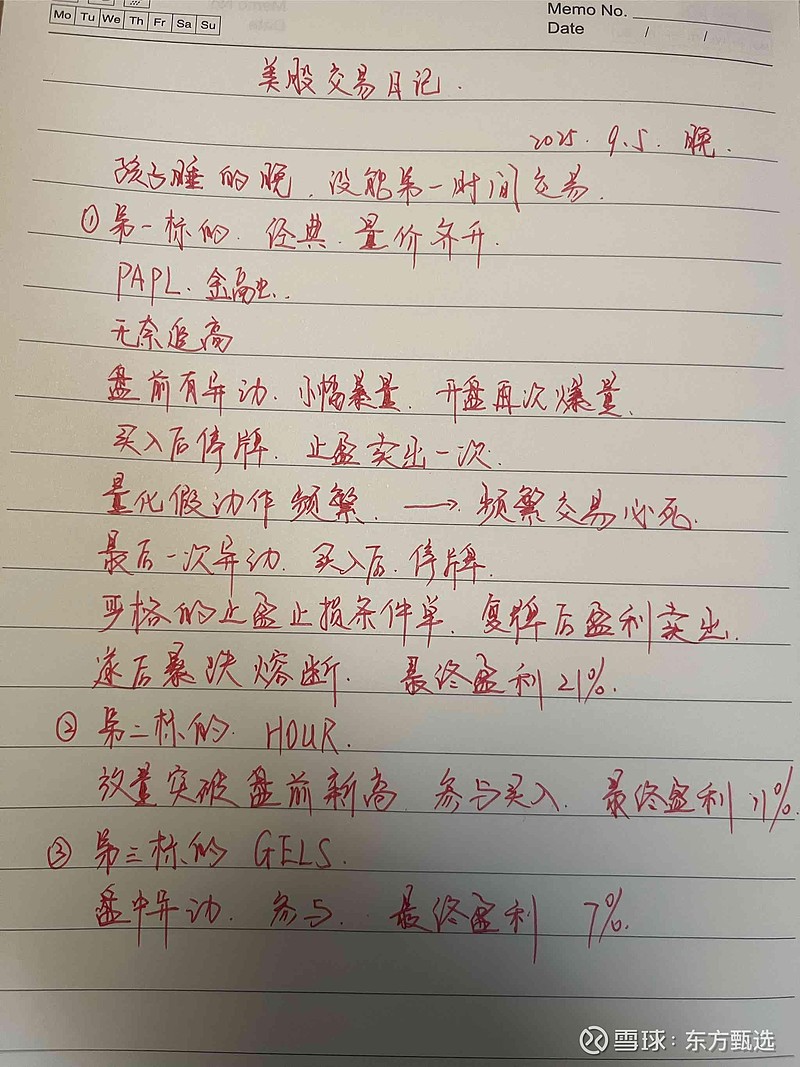 Mo Tu We Th Fr Sa Su
Memo No.
Date / /
美股交易日记.
2025. 9.5. 晚.
孩子睡的晚,没能第一时间交易.
① 第一标的. 经典. 量价齐升.
PAPL. 金融.
无奈追高
盘前有异动. 小幅暴量. 开盘再次爆量.
买入后停牌. 止盈卖出一次.
量化假动作频繁. → 频繁交易必死.
最后一次异动. 买入后. 停牌.
严格的止盈止损条件单. 复牌后盈利卖出.
遂后暴跌熔断. 最终盈利21%.
② 第二标的. HOUR.
放量突破盘前新高. 参与买入. 最终盈利11%.
③ 第三标的 GELS.
盘中异动. 参与. 最终盈利 7%.
雪球:东方甄选